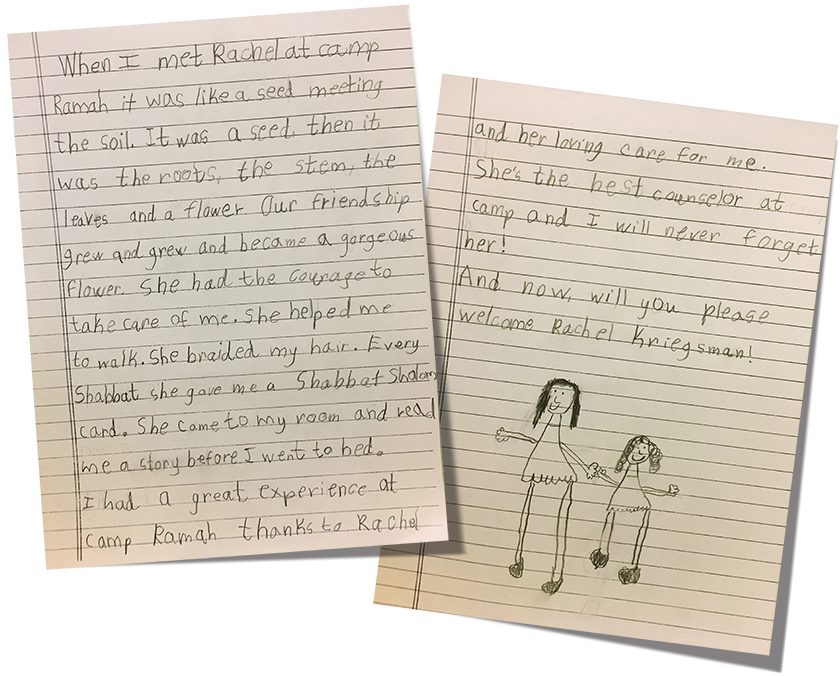 When I met Rachel at camp
Ramah it was like a seed meeting
the soil. It was a seed, then it
was the roots, the stem, the
leaves and a flower. Our friendship
grew and grew and became a gorgeous
flower. She had the courage to
take care of me. She helped me
to walk. She braided my hair. Every
Shabbat she gave me a Shabbat Shalom
card. She came to my room and read
me a story before I went to bed.
I had a great experience at
camp Ramah thanks to Rachel
and her loving care for me.
She's the best counselor at
camp and I will never forget
her!
And now, will you please
welcome Rachel Kriegsman!